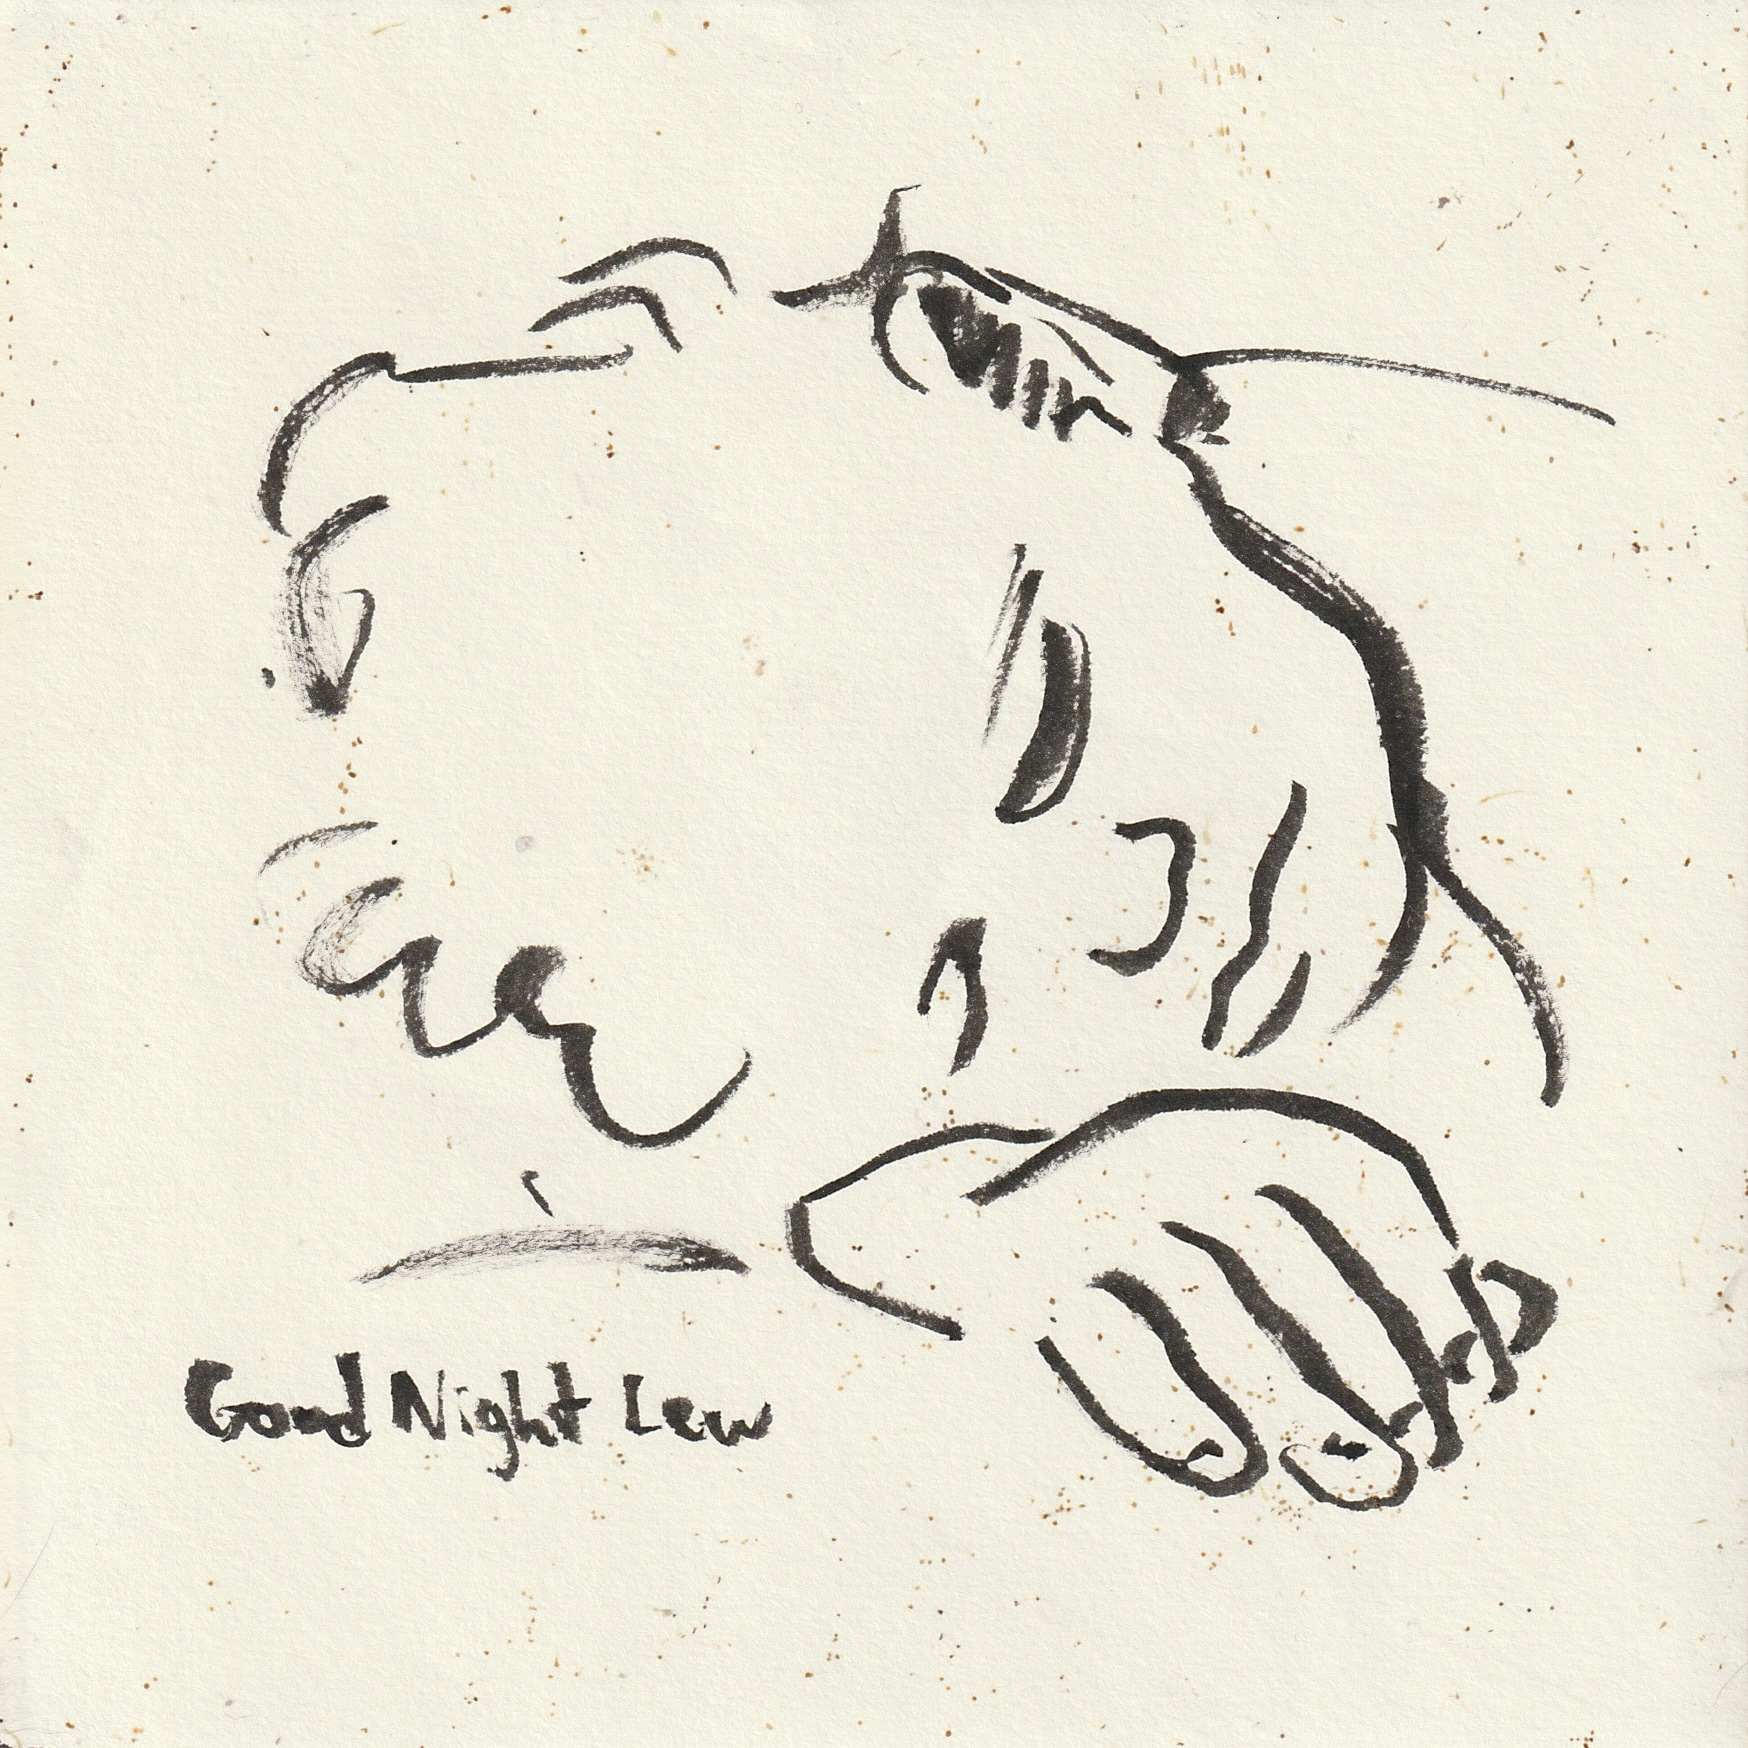 Good Night Lew